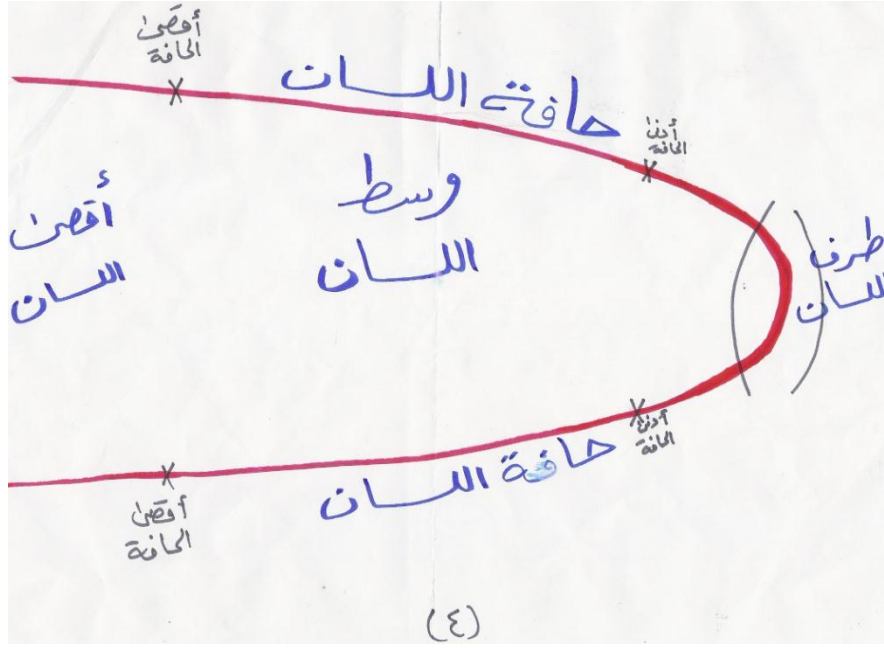 أقصى
الحافة
حافة اللسان
أدنى
الحافة
وسط
اللسان
أقصى
اللسان
طرف
اللسان
أدنى
الحافة
حافة اللسان
أقصى
الحافة
(٤)